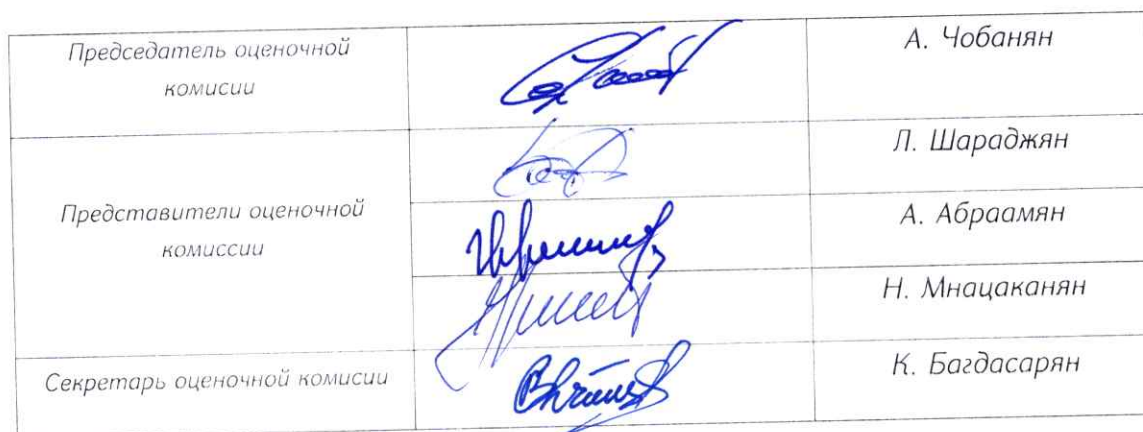 Председатель оценочной
комисии
А. Чобанян
Л. Шараджян
Представители оценочной
комиссии
А. Абраамян
Н. Мнацаканян
Секретарь оценочной комисии
К. Багдасарян